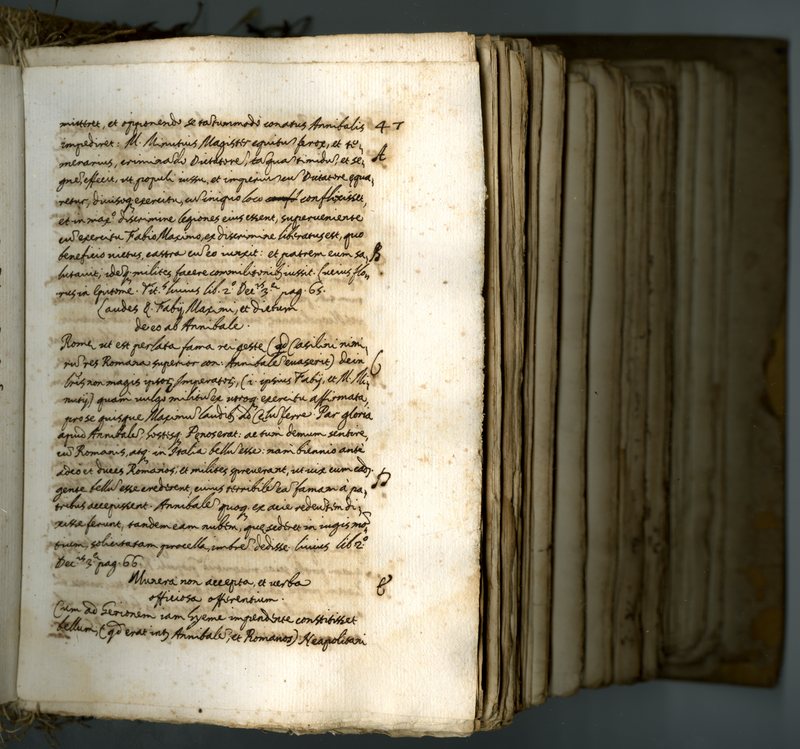 mitteret, et opponendo se tantummodo conatus Annibalis 47
impediret: M. Minutius Magister equitũ ferox, et te,
merarius, criminãdo Dictatorẽ, tãquã timidũ, et se, A
gnẽ, effecit, ut populi iussu, et imperiũ cũ Dictatore equa,
retur, divisoq exercitu, cũ iniquo loco conflixisset,
et in maxº discrimine legiones eius essent, superveniente
cũ exercitu Fabio Maximo, ex discrimine liberatus est, quo
beneficio victus, castra cũ eo iunxit: et patrem eum sa, B
lutavit, idẽq milites facere commilitonibꝫ iussit. Lucius Flo,
rus in Epitome. Tit. Livius lib. 2º Dec 3ª pag. 65.
Laudes Q. Fabij Maximi, et dictum
de eo ab Annibale.
Romã, ut est perlata fama rei geste (qd Casilini nimi,
rũ res Romana superior con: Annibalẽ evaserit) dein C
lr̃is non magis ipsoꝝ Imperatoꝝ, (i. ipsius Fabij, et M. Mi,
nutij) quam vulgo militũ ex utroq exercitu affirmata,
pro se quisque Maximũ laudibꝫ ad Celũ ferre. Par gloria
apud Annibalẽ, hostesq Penos erat: ac tum demum sentire,
cũ Romanis, atq in Italia bellũ esse: nam biennio ante
adeo et duces Romanos, et milites spreverant, ut vix cum eadẽ
gente bellũ esse crederent, cuius terribilẽ eã famam à pa, D
tribus accepissent. Annibalẽ quoq ex acie redeuntẽ di,
xisse ferunt, tandem eam nubem, que sedere in iugis mõ,
tium, solita tam procella, imbrẽ dedisse. Livius lib. 2º
Dec 3ª pag. 66.
Munera non accepta, et verba E
officiosa offerentium.
Cum ad Gerionem iam hyeme impendẽte constitisset
bellum, (qd erat intꝫ Annibalẽ, et Romanos) Neapolitani